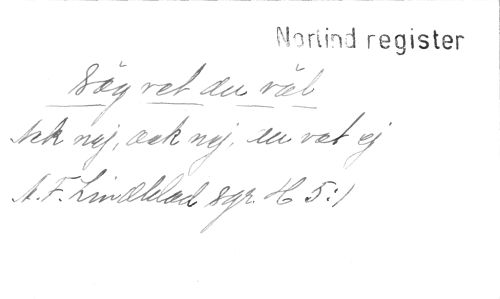 Norlind register
Säg vet du väl
Ack nej, ack nej, du vet ej
A. F. Lindblad sgr. H 5:1